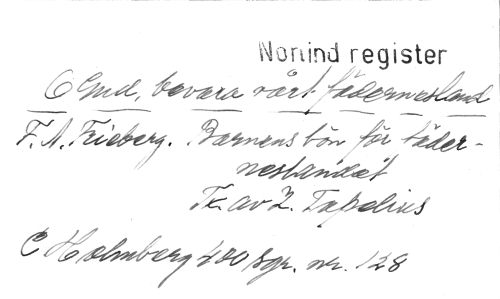 Nonind register
O Gud, bevara vårt fädernesland
F. A. Frieberg. Barnens bön för fäder-
neslandet
Tr. av Z. Topelius
C Holmberg 400 sgr. nr. 128